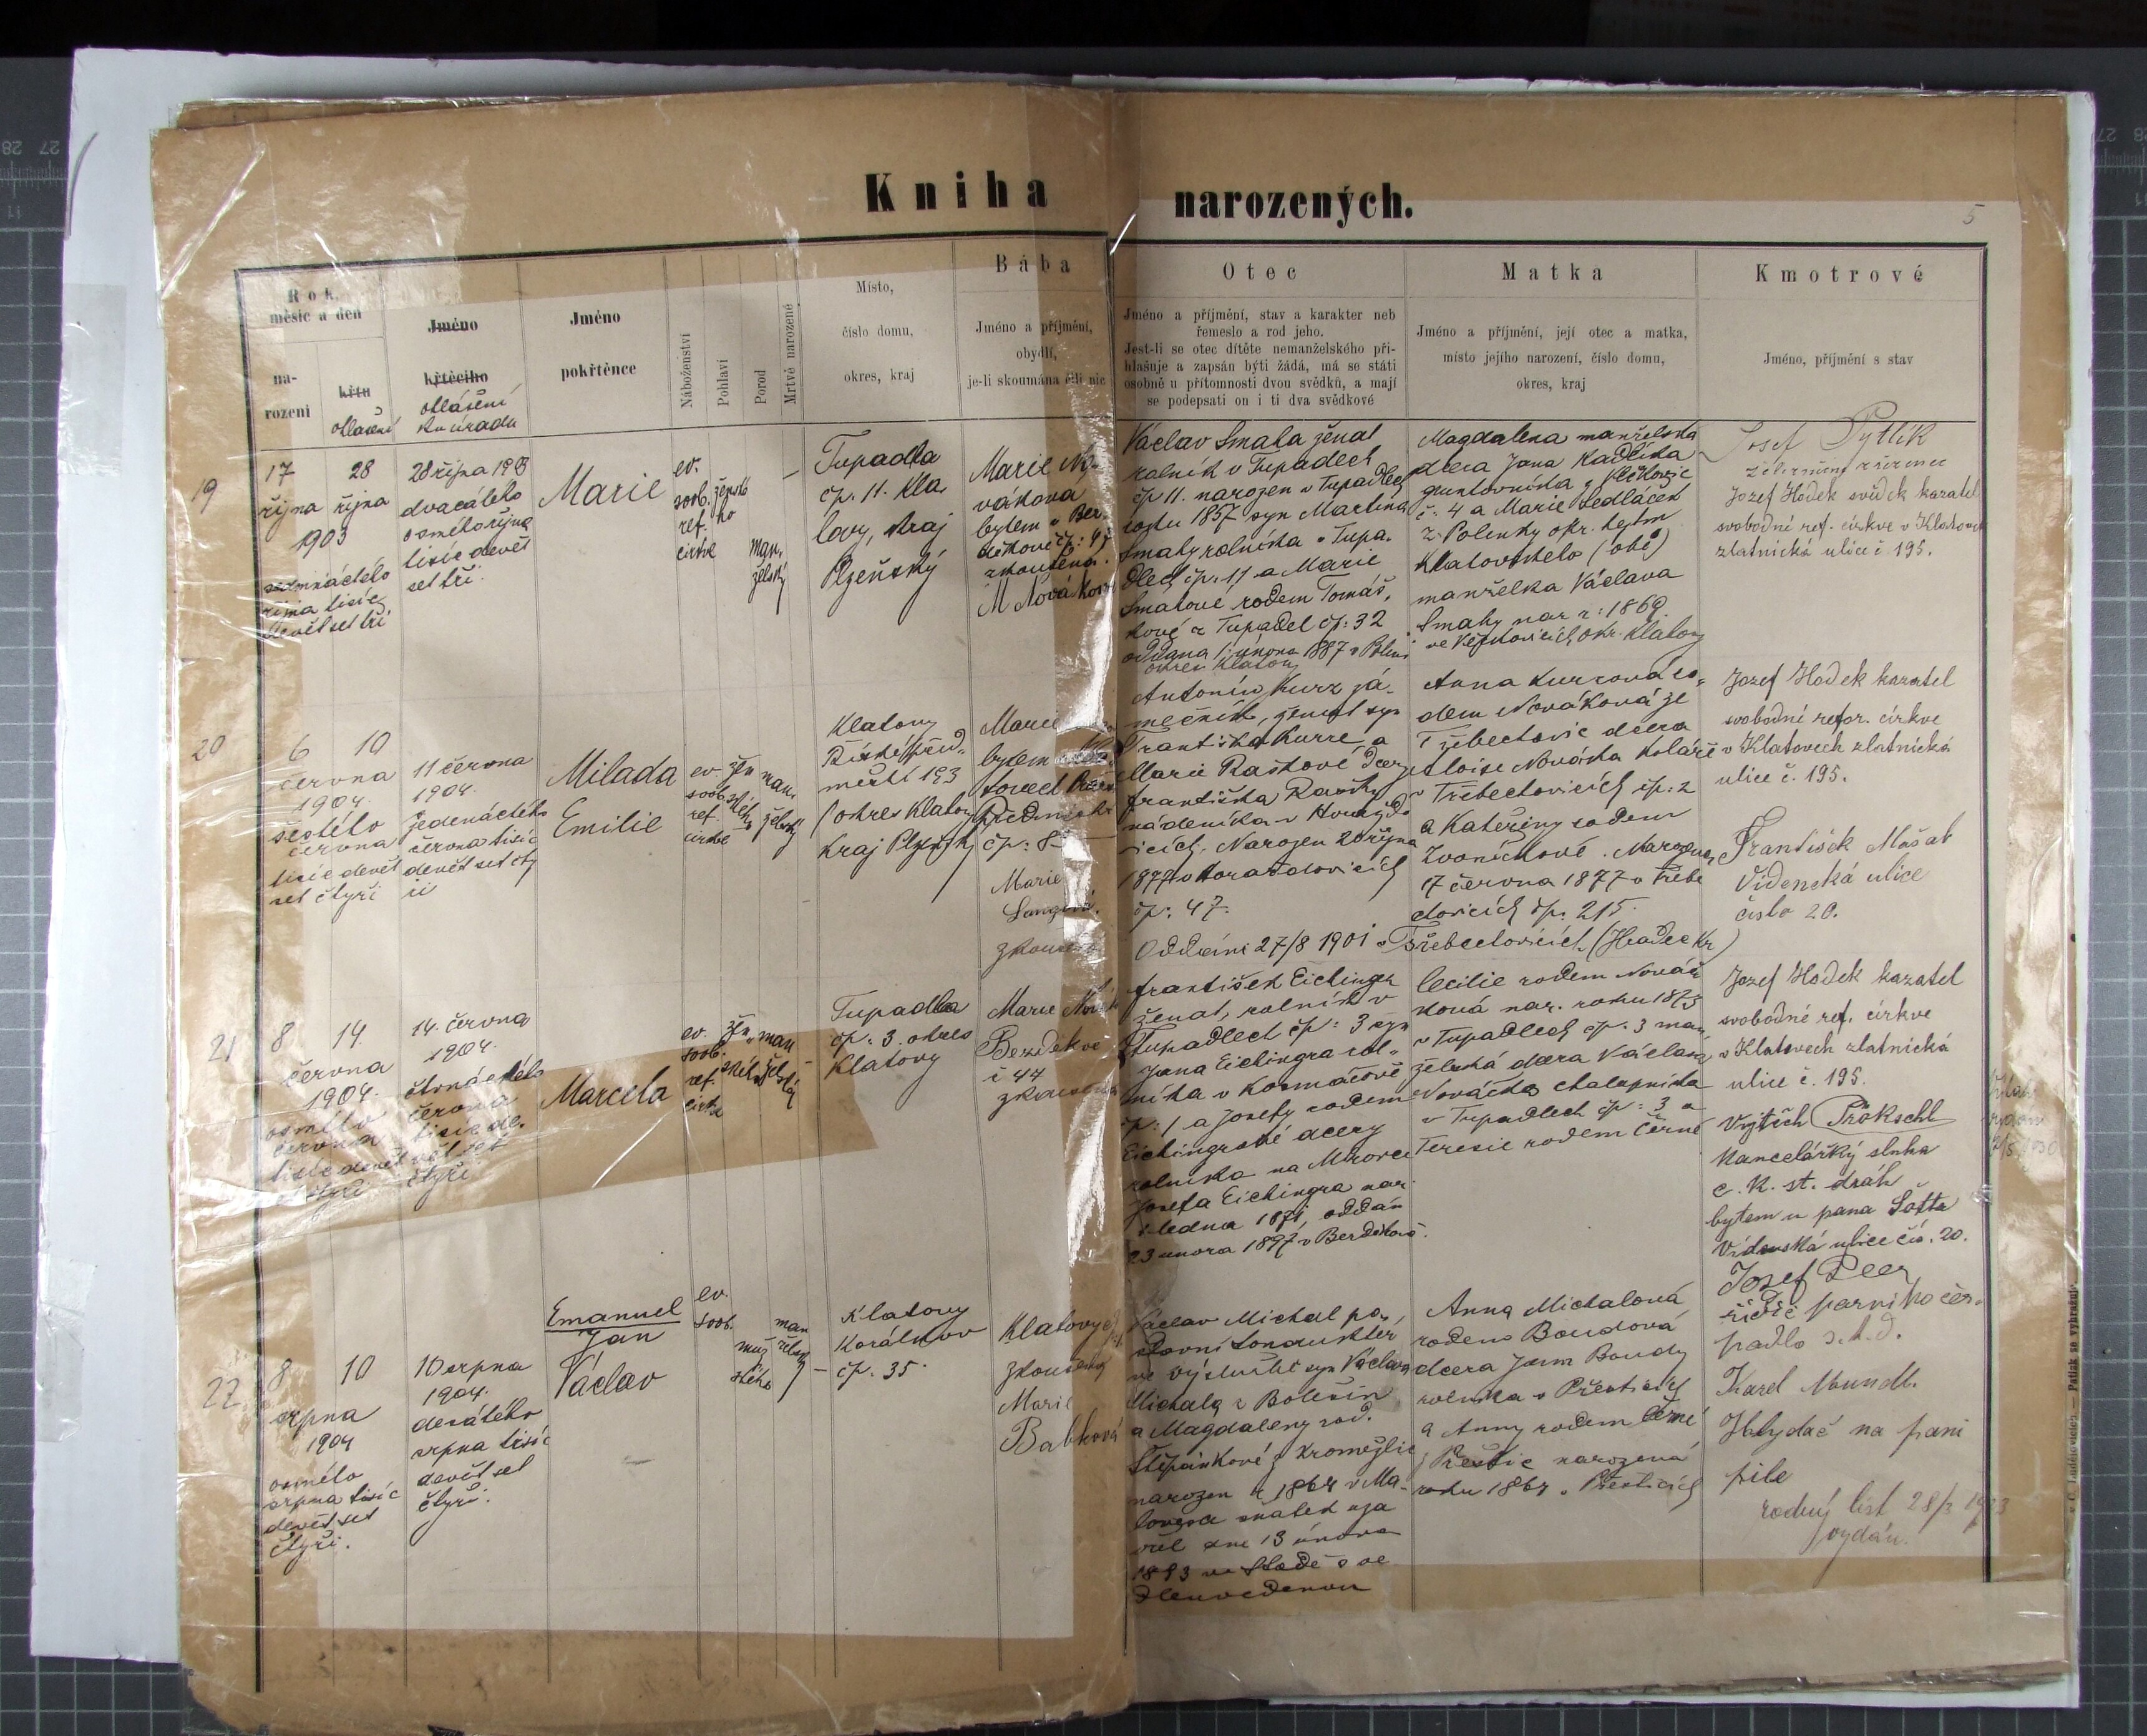 Kniha narozených.
5
Rok, měsíc a den
na-
rození
křtu
ohlášení
Jméno
křtícího
ohlášení
ku úradu
Jméno
pokřtěnce
Náboženství
Pohlaví
Porod
Mrtvě narozené
Místo,
číslo domu,
okres, kraj
Bába
Jméno a příjmění,
obydlí,
je-li skoumána čili nic
Otec
Jméno a příjmění, stav a karakter neb
řemeslo a rod jeho.
Jest-li se otec dítěte nemanželského při-
hlašuje a zapsán býti žádá, má se státi
osobně u přítomnosti dvou svědků, a mají
se podepsati on i ti dva svědkové
Matka
Jméno a příjmění, její otec a matka,
místo jejího narození, číslo domu,
okres, kraj
Kmotrové
Jméno, příjmění s stav
19
17
října
1903
sedmnáctého
října tisíc
devět set tři
28
října
28 října 1903
dvacátého
osmého října
tisíc devět
set tři.
Marie
ev.
sob.
ref.
církve
ženské
ho
man.
želský
–
Tupadla
čp. 11. Kla
tovy, kraj
Plzeňský
Marie No-
váková
bytem v Bez
děkově čp: 47
zkoušená.
M Nováková
Václav Smaha ženat
rolník v Tupadlech
čp 11. narozen v Tupadlech
roku 1857 syn Martina
Smahy rolníka v Tupa.
dlech čp. 11 a Marie
Smahové rodem Tomáš,
kové z Tupadel čp: 32
oddana 1. února 1887 v
okres Klatovy
Magdalena manželská
dcera Jana Kadlíka
gruntovníka z
č. 4 a Marie Sedláček
z Polenky okr. hejtm
Klatovského (obě)
manželka Václava
Smahy nar r: 1869.
ve okr. Klatovy
Josef Pytlík
Jozef Hodek svědek kazatel
svobodné ref. církve v Klatovech
zlatnická ulice č. 195.
20
6
června
1904.
šestého
června
tisíc devět
set čtyři
10
11 června
1904.
jedenáctého
června tisíc
devět set čty
ři
Milada
Emilie
ev.
sob.
ref.
církve
žen
ského
man.
želský
Klatovy
Říšské před.
městí 193
okres Klatovy
kraj Plzeňský
Marie
bytem
čp: 8
Marie
Langová.
zkoušená
Antonín Kurz zá-
mečník, ženat syn
Františka Kurze a
Marie Raškové dcery
Františka Rašky
nádeníka v
icích, Narozen 20 října
1877 v Horažďovicích
čp. 47.
Anna Kurzová ro-
dem Nováková ze
Třebechovic dcera
Aloise Nováka koláře
v Třebechovicích čp: 2
a Kateřiny rodem
Zvoníčkové. Narozena
17 června 1877 v Třebe
chovicích čp. 215.
Oddáni 27/8 1901 v Třebechovicích (Hradec Kr)
Jozef Hodek kazatel
svobodné refor. církve
v Klatovech zlatnická
ulice č. 195.
František Mašat
Vídenská ulice
číslo 20.
21
8
června
1904.
osmého
června
tisíc devět
set čtyři
14.
14. června
1904.
čtrnáctého
června
tisíc de.
vět set
čtyři.
Marcela
ev.
sob.
ref.
církve
žen
ského
man
želský
Tupadla
čp. 3. okres
Klatovy
Marie Novák
Bezděkov
č 44
zkoušená
František Eichinger
ženat, rolník v
Tupadlech čp: 3 syn
Jana Eichingra rol-
níka v Kosmáčově
čp: 1 a Josefy rodem
Eichingrové dcery
rolníka na
Josefa Eichingra nar.
1 ledna 1871 oddán
23 února 1897 v Bezděkově.
Cecilie rodem Nová
ková nar. roku 1873
v Tupadlech čp. 3 man
želská dcera Václava
Nováka chalupníka
v Tupadlech čp: 3 a
Terezie rodem Černé
Jozef Hodek kazatel
svobodné ref. církve
v Klatovech zlatnická
ulice č. 195.
Vojtěch Prökschl
Kancelářský sluha
c. K. st. dráh
bytem u pana Šotta
Vídenská ulice čís. 20.
22.
8
srpna
1904
osmého
srpna tisíc
devět set
čtyři.
10
10 srpna
1904.
desátého
srpna tisíc
devět set
čtyři.
Emanuel
Jan
Václav
ev.
sob.
muž
ského
man
želský
–
Klatovy
Korálkov
čp. 35.
Klatovy
zkoušená
Marie
Babková
Václav Michal po.
štovní konduktér
ve výslužbě syn Václava
Michala z Bolešin
a Magdaleny rod.
Štěpánkové z
narozen r 1864 v Ma-
sňatek uza
vřel dne 13 února
1893 ve
Anna Michalová
rodem Boudová
dcera Jana Boudy
rolníka v Přešticích
a Anny rodem Černé
z Přeštic narozená
roku 1864 v Přešticích
Jozef Peer
řídič parního čer-
padla s. k. d.
Karel Mundl.
Hlydač na parní
pile
rodný list 28/3 1933
vydán.